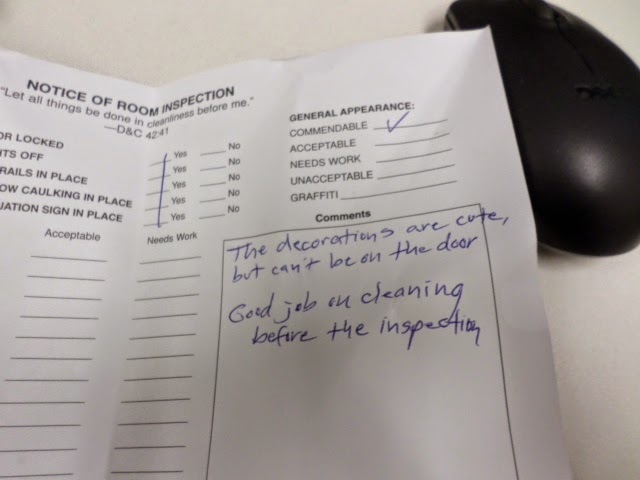 NOTICE OF ROOM INSPECTION
"Let all things be done in cleanliness before me."
—D&C 42:41
OR LOCKED Yes No
TS OFF Yes No
RAILS IN PLACE Yes No
OW CAULKING IN PLACE Yes No
UATION SIGN IN PLACE Yes No
Acceptable Needs Work
GENERAL APPEARANCE:
COMMENDABLE ✓
ACCEPTABLE
NEEDS WORK
UNACCEPTABLE
GRAFFITI
Comments
The decorations are cute,
but can't be on the door
Good job on cleaning
before the inspection